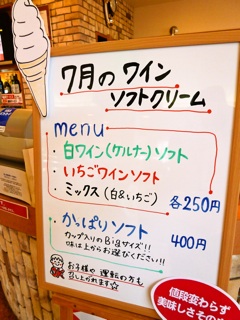 7月の ワイン
ソフトクリーム
menu
・白ワイン(ケルナー)ソフト
・いちごワインソフト
・ミックス(白&いちご)
各250円
・がっぱりソフト
400円
カップ入りのBigサイズ!!
味は上からお選びください!!
お子様や 運転の方も
召し上がれます☆
値段変わらず